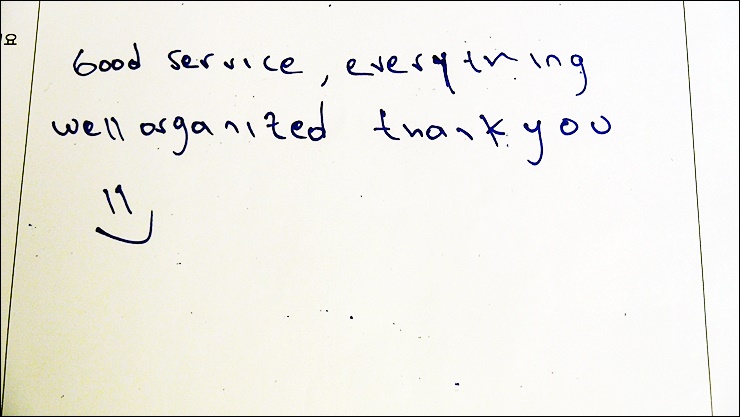 요
Good service, everything
well organized thank you